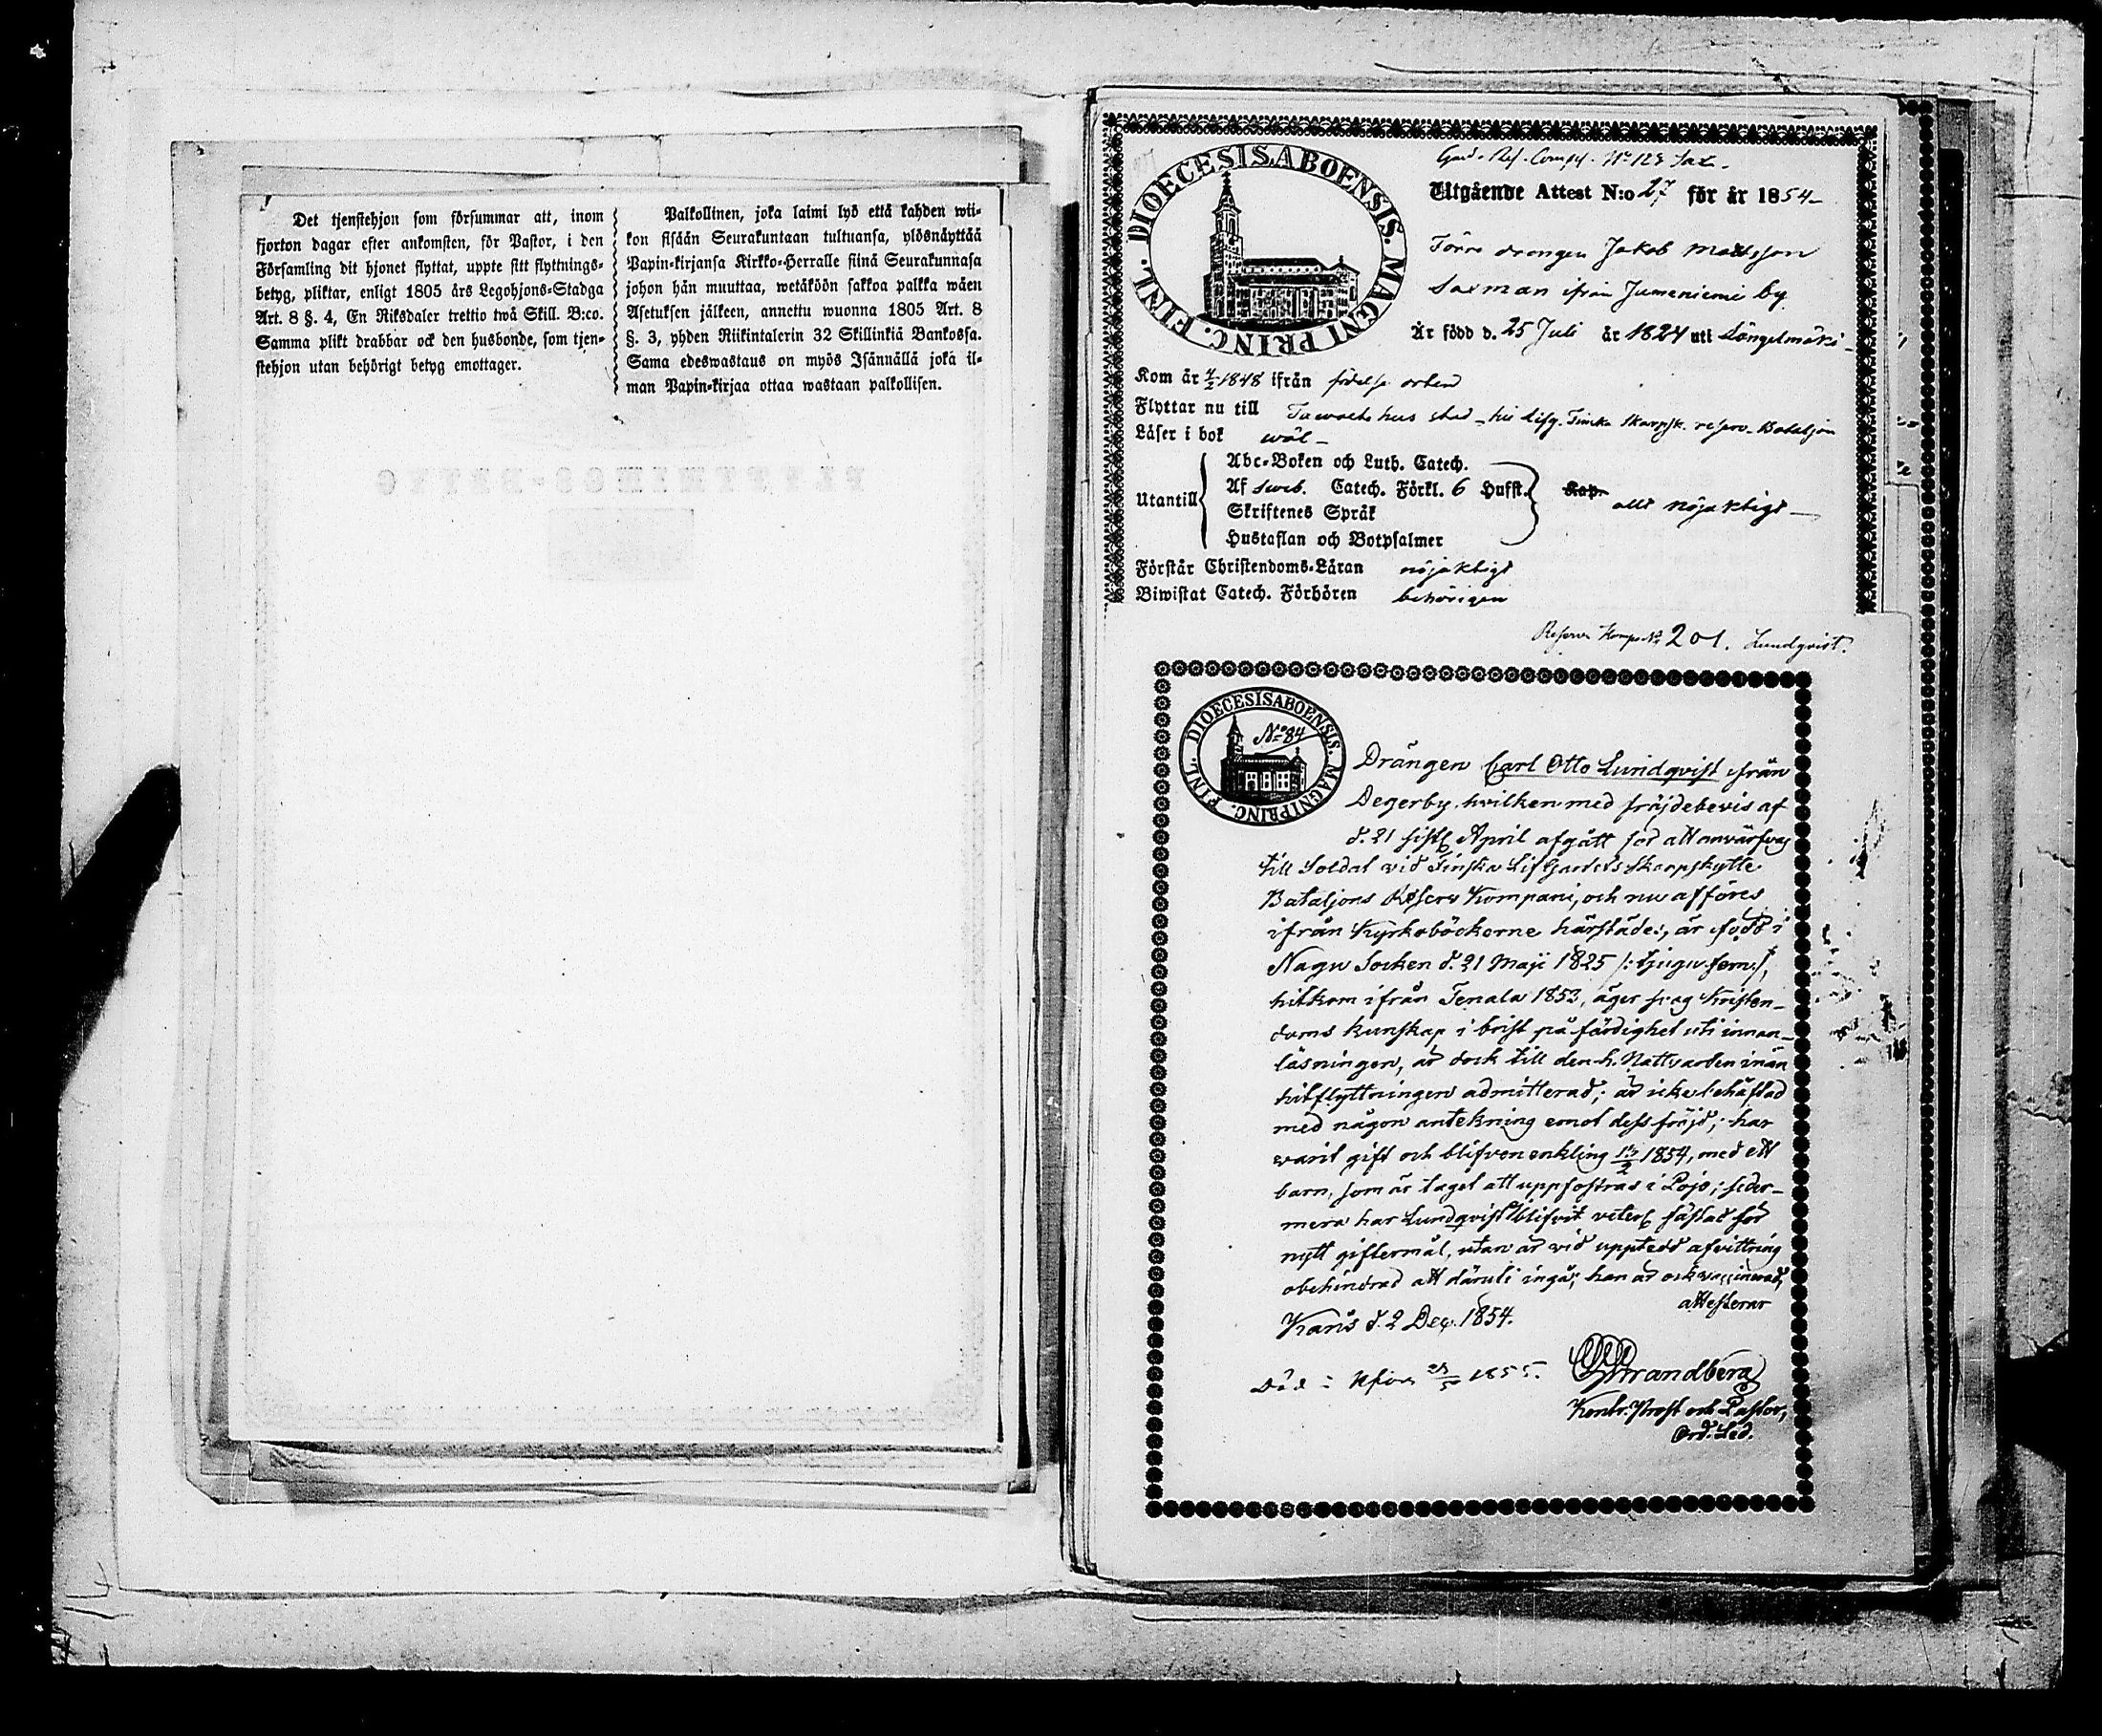 Det tjenstehjon som försummar att, inom
fjorton dagar efter ankomsten, för Pastor, i den
Församling dit hjonet flyttat, uppte sitt flyttnings-
betyg, pliktar, enligt 1805 års Legohjons-Stadga
Art. 8 §. 4, En Riksdaler trettio twå Skill. B:co.
Samma plikt drabbar ock den husbonde, som tjen-
stehjon utan behörigt betyg emottager.
Palkollinen, joka laimi lyö että kahden wii-
kon sisään Seurakuntaan tultuansa, ylösnäyttää
Papin-kirjansa Kirkko-Herralle siinä Seurakunnasa
johon hän muuttaa, wetäköön sakkoa palkka wäen
Asetuksen jälkeen, annettu wuonna 1805 Art. 8
§. 3, yhden Riikintalerin 32 Skillinkiä Bankossa.
Sama edeswastaus on myös Isännällä joka il-
man Papin-kirjaa ottaa wastaan palkollisen.
DIOECESIS ABOENSIS. MAGNI PRINC. FINL.
Gard. Res. Comp. No 123 Sax.
Utgående Attest N:o 27 för år 1854
Förre drengen Jakob Mattsson
Saxman ifrån Jumeniemi by
Är född d. 25 Juli år 1824 uti Längelmäki
Kom år 1848 ifrån födelse orten
Flyttar nu till Tawastehus stad - Finska Skarpsk. reserv-Bataljon
Läser i bok wäl
Utantill
Abc-Boken och Luth. Catech.
Af Sweb. Catech. Förkl. 6 Hufst.
Skriftenes Språk
Hustaflan och Botpsalmer
Kap. allt nöjaktigt
Förstår Christendoms-Läran nöjaktigt
Biwistat Catech. Förhören behörigen
Reserv Komp. No 201. Lundqvist.
DIOECESIS ABOENSIS. MAGNI PRINC. FINL.
No 84
Drängen Carl Otto Lundqvist ifrån
Degerby, hvilken med fräjdebevis af
d. 21 sistl. April afgått för att anvärfvas
till Soldat vid Finska Lif Gardets Skarpskytte
Bataljons Reserv Kompani, och nu afföres
ifrån Kyrkoböckerne härstädes, är född i
Nagu Socken d. 21 Maji 1825 /: tjugu fem :/,
hitkom ifrån Tenala 1853, äger svag Kristen-
doms kunskap i brist på färdighet uti innan-
läsningen, är dock till den h. Nattvarden innan
hitflyttningen admitterad; är icke behäftad
med någon antekning emot dess fräjd; har
varit gift och blifven enkling 1854, med ett
barn, som är taget att uppfostras i Pojo; seder-
mera har Lundqvist blifvit fästad för
nytt giftermål, utan är vid uppteedd afvittring
obehindrad att däruti ingå; han är ock vaccinerad,
attesterar
Karis d. 2 Dec. 1854.
Strandberg
Kontr. Prost och Pastor,
Ord. Led.
Död 1855.